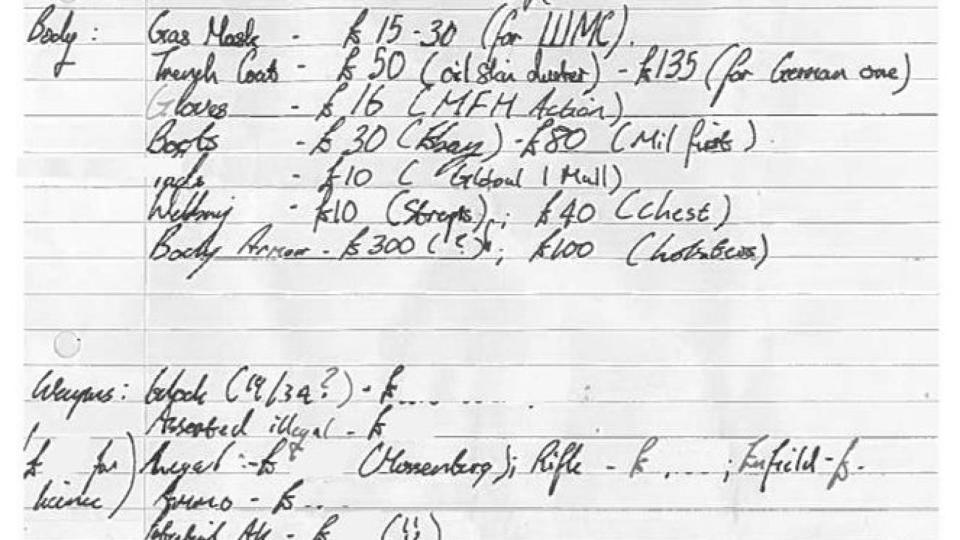 Body: Gas Mask - £ 15-30 (for
Trench Coat - £ 50 (oil skin duster) - £135 (for German one)
Gloves - £ 16 (MFH Action)
Boots - £ 30 (Ebay) - £80 (Mil
- £10 ( Global 1 Mall)
Webbing - £10 (Straps); £40 (Chest)
Body Armour - £300 (?); £100
Weapons: Glock (19/ ?) - £.... .... .
Assorted illegal - £
£ for) - £ (Mossenberg); Rifle - £ ....; Enfield - £.
licence) Ammo - £ ...
AK - £